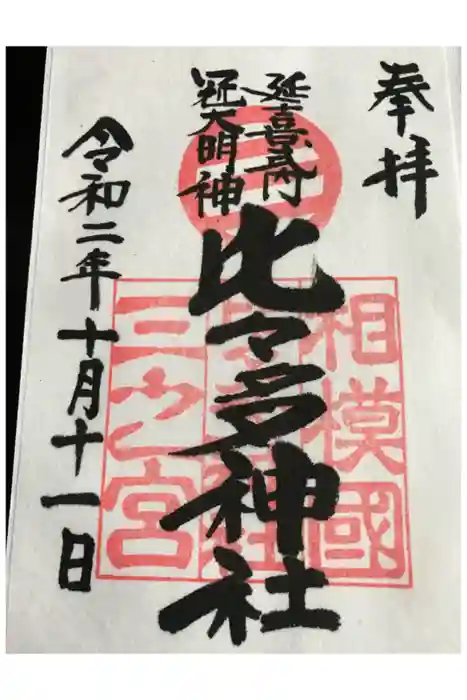 奉拝
延喜式内
冠大明神
比々多神社
相模國
三之宮
令和二年十月十一日